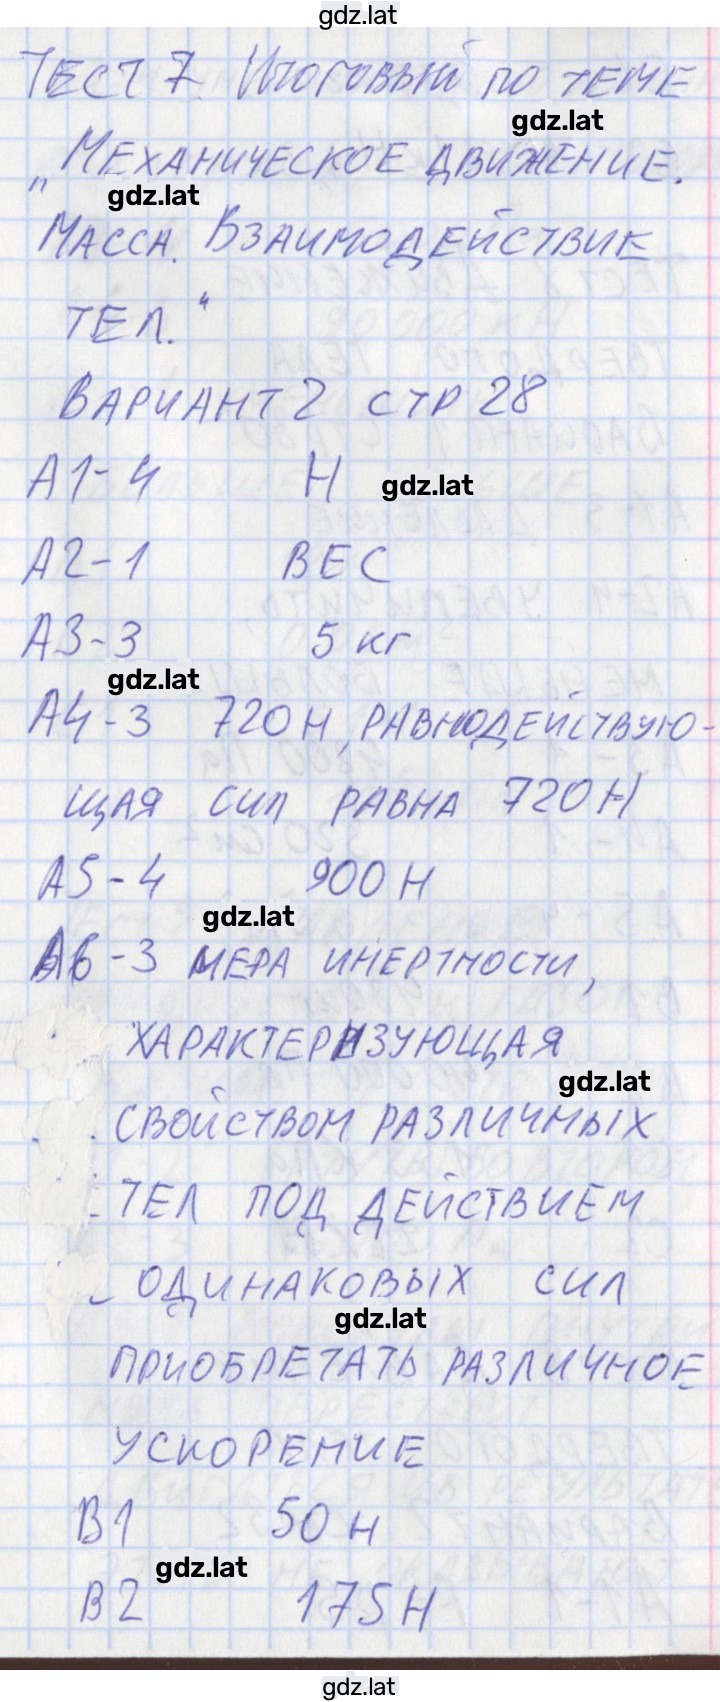 gdz.lat
Тест 7. Итоговый по теме
gdz.lat
„Механическое движение.
gdz.lat
Масса. Взаимодействие
тел.“
Вариант 2 стр 28
А1-4 Н
gdz.lat
А2-1 вес
А3-3 5 кг
gdz.lat
А4-3 720 Н, равнодействую-
щая сил равна 720 Н
А5-4 900 Н
gdz.lat
А6-3 мера инертности,
характеризующая
gdz.lat
свойством различных
тел под действием
одинаковых сил
gdz.lat
приобретать различное
ускорение
В1 50 Н
gdz.lat
В2 175 Н
gdz.lat